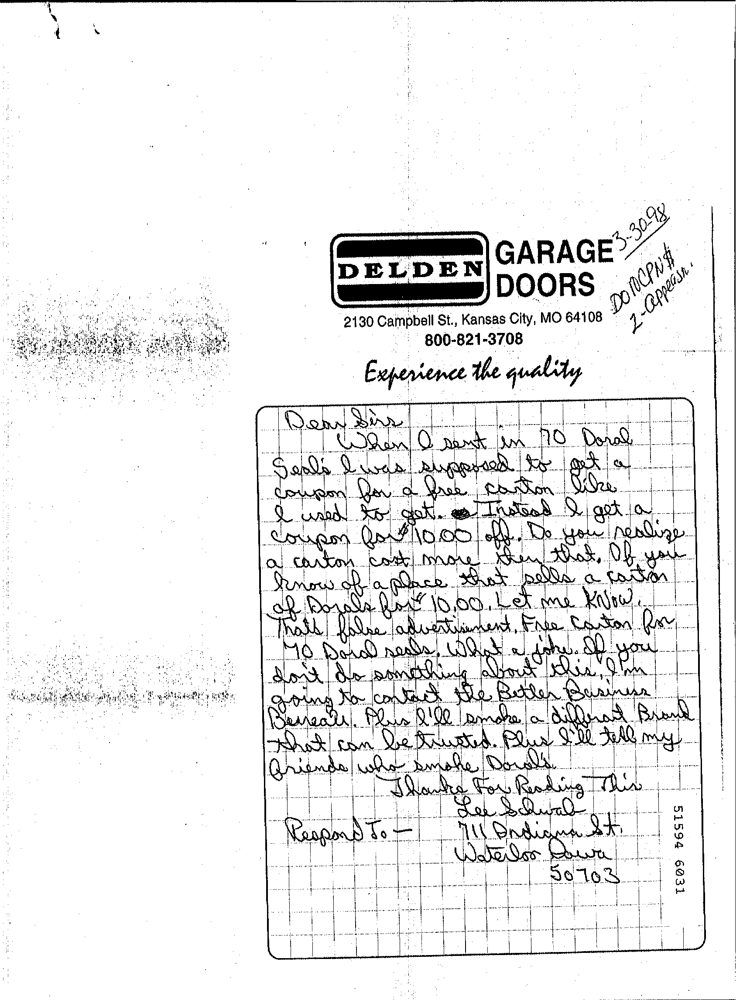 3-30-98
DELDEN GARAGE DOORS
DORCPN$
2-appeasm.
2130 Campbell St., Kansas City, MO 64108
800-821-3708
Experience the quality
Dear Sirs
When I sent in 70 Doral
Seal's I was supposed to get a
coupon for a free carton like
I used to get. Instead I get a
coupon for $10.00 off. Do you realize
a carton cost more then that. If you
know of a place that sells a carton
of Dorals for $10.00. Let me KNow.
That's false advertisement. Free Carton for
70 Doral seals. What a joke. If you
don't do something about this, I'm
going to contact the Better Business
Beureau. Plus I'll smoke a different Brand
that can be trusted. Plus I'll tell my
friends who smoke Doral's.
Thanks For Reading This
Lee Schwab
Respond To - 711 Indiana St.
Waterloo Iowa
50703
51594 6031